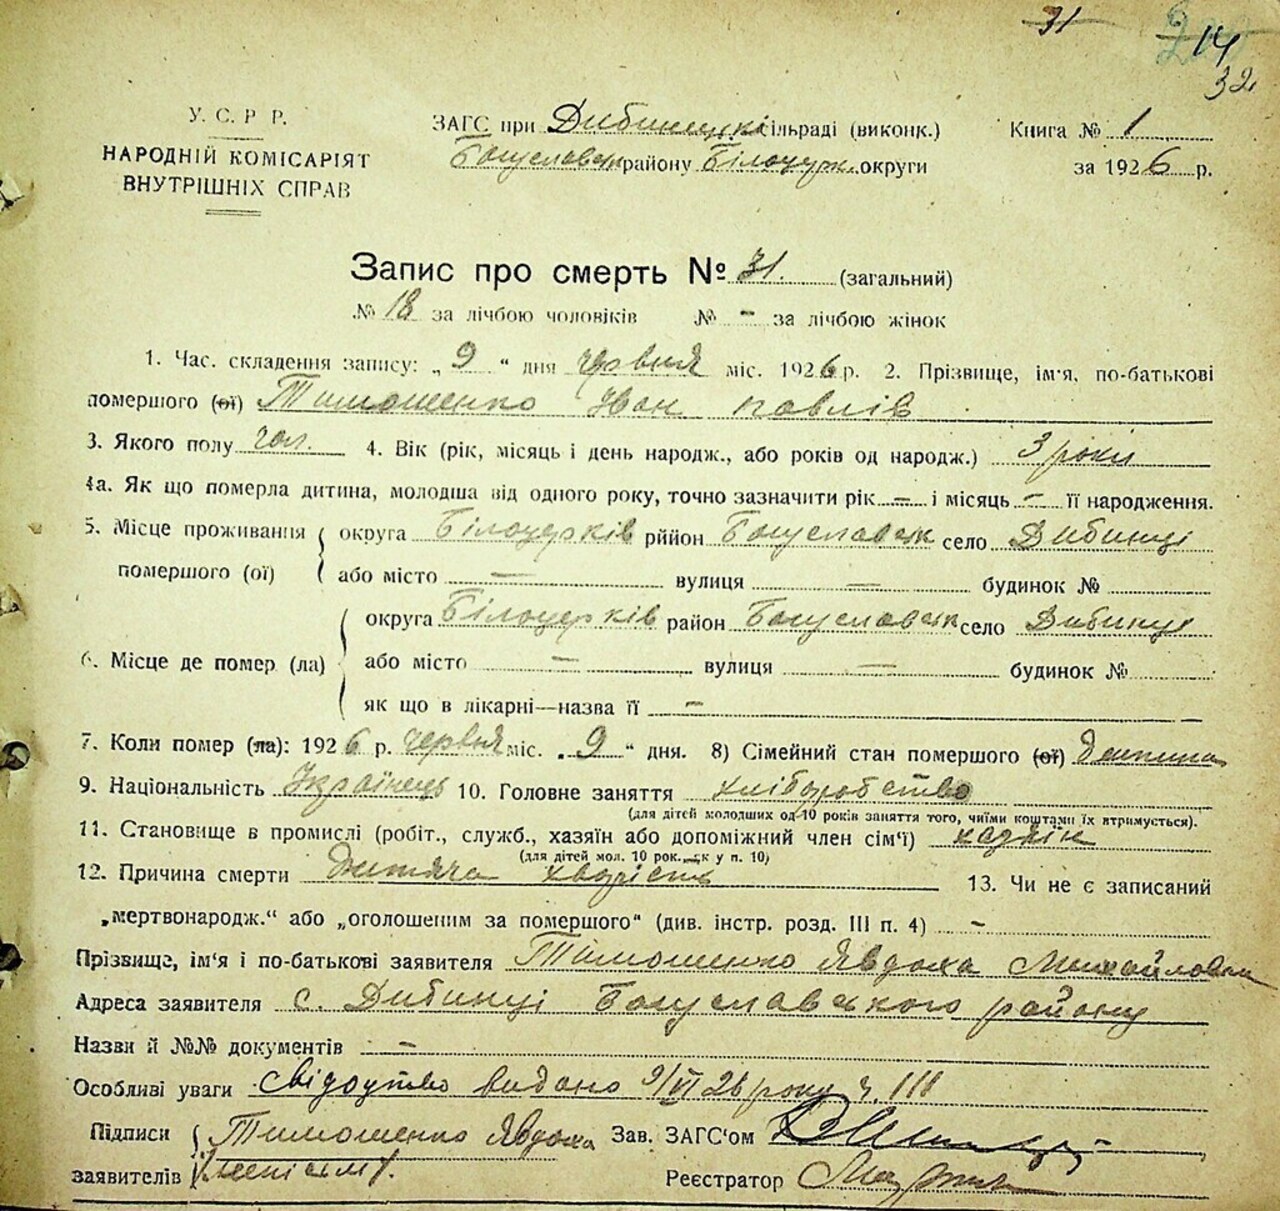 31 14
32
У. С. Р Р.
НАРОДНІЙ КОМІСАРІЯТ
ВНУТРІШНІХ СПРАВ
ЗАГС при Дибинецкі сільраді (виконк.)
Богуславськ району Білоцерк. округи
Книга № 1
за 1926 р.
Запис про смерть № 31. (загальний)
№ 18 за лічбою чоловіків № - за лічбою жінок
1. Час. складення запису: „ 9 “ дня червня міс. 1926 р. 2. Прізвище, ім'я, по-батькові
помершого (ої) Тимошенко Іван Павлів
3. Якого полу чол. 4. Вік (рік, місяць і день народж., або років од народж.) 3 роки
4а. Як що померла дитина, молодша від одного року, точно зазначити рік — і місяць — її народження.
5. Місце проживання помершого (ої)
округа Білоцерків рййон Богуславськ село Дибинці
або місто — вулиця — будинок №
6. Місце де помер (ла)
округа Білоцерків район Богуславськ село Дибинці
або місто — вулиця — будинок №
як що в лікарні—назва її —
7. Коли помер (ла): 1926 р. червня міс. „ 9 “ дня. 8) Сімейний стан помершого (ої) дитина
9. Національність Українець 10. Головне заняття хліборобство
(для дітей молодших од 10 років заняття того, чиїми коштами їх втримується).
11. Становище в промислі (робіт., служб., хазяїн або допоміжний член сім'ї) хазяїн
(для дітей мол. 10 рок. як у п. 10)
12. Причина смерти Дитяча хворість 13. Чи не є записаний
„мертвонародж.“ або „оголошеним за помершого“ (див. інстр. розд. III п. 4) —
Прізвище, ім'я і по-батькові заявителя Тимошенко Явдоха Михайловна
Адреса заявителя с. Дибинці Богуславського району
Назви й №№ документів —
Особливі уваги Свідоцтво видано 9/VI 26 року ч. 111
Підписи заявителів Тимошенко Явдоха
Зав. ЗАГС'ом
Реєстратор